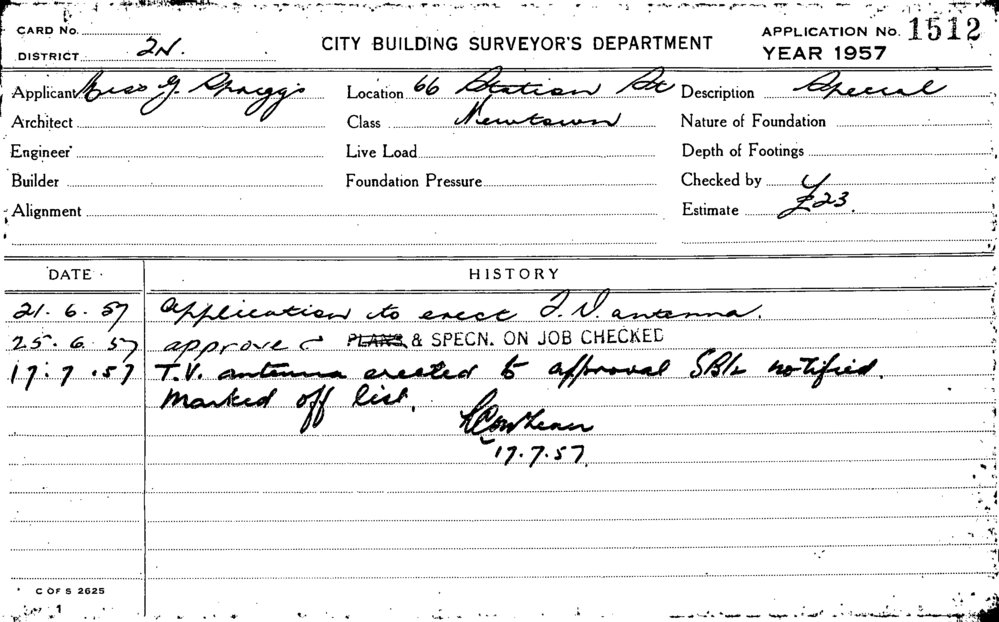 CARD No.
DISTRICT 2N.
CITY BUILDING SURVEYOR'S DEPARTMENT
APPLICATION No. 1512
YEAR 1957
Applicant Miss G. Spraggs Location 66 Station St Description Special
Architect Class Newtown Nature of Foundation
Engineer Live Load Depth of Footings
Builder Foundation Pressure Checked by
Alignment Estimate £23.
DATE HISTORY
21. 6. 57 Application to erect T.V antenna.
25. 6. 57 approve PLANS & SPECN. ON JOB CHECKED
17. 7. 57 T.V. antenna erected to approval notified.
Marked off list.
17.7.57.
C OF S 2625
1